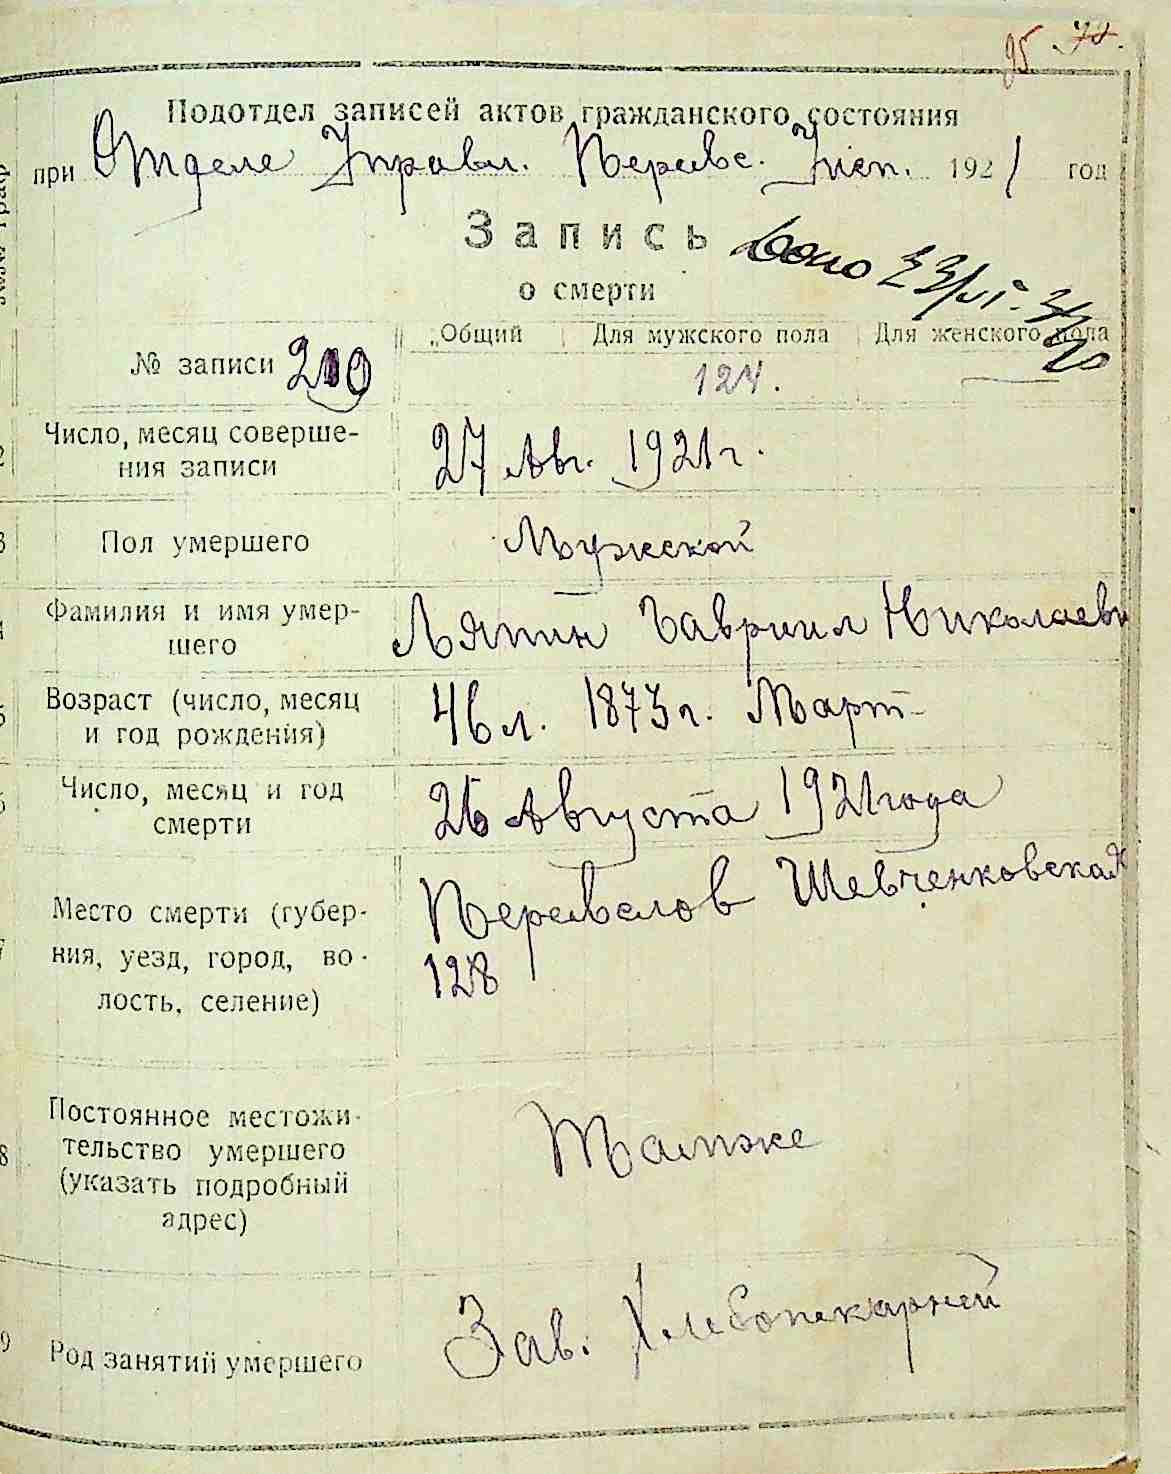 95 70.
Подотдел записей актов гражданского состояния
при Отделе Управл. Первс. Исп. 1921 год
Запись
о смерти
„Общий Для мужского пола Для женского пола
№ записи 210 124. —
Число, месяц соверше-
ния записи
27 Авг. 1921 г.
3 Пол умершего Мужской
Фамилия и имя умер-
шего
Ляпин Гавриил Николаеви
Возраст (число, месяц
и год рождения)
46 л. 1873 г. Март
Число, месяц и год
смерти
26 Августа 1921 года
Место смерти (губер-
ния, уезд, город, во-
лость, селение)
Шевченковская
128
8 Постоянное местожи-
тельство умершего
(указать подробный
адрес)
Также
9 Род занятий умершего Зав. Хлебопекарней